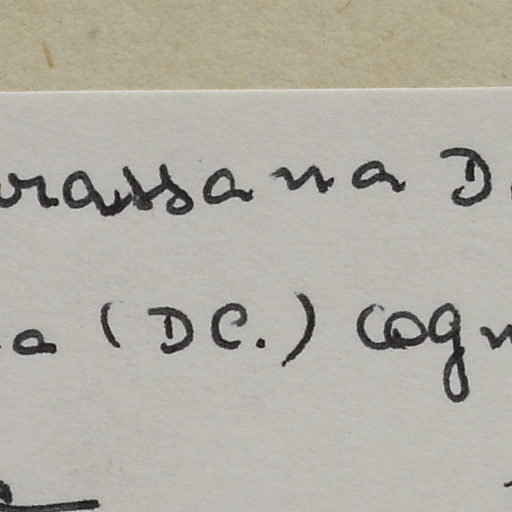 rassana D
a (DC.) Cogn